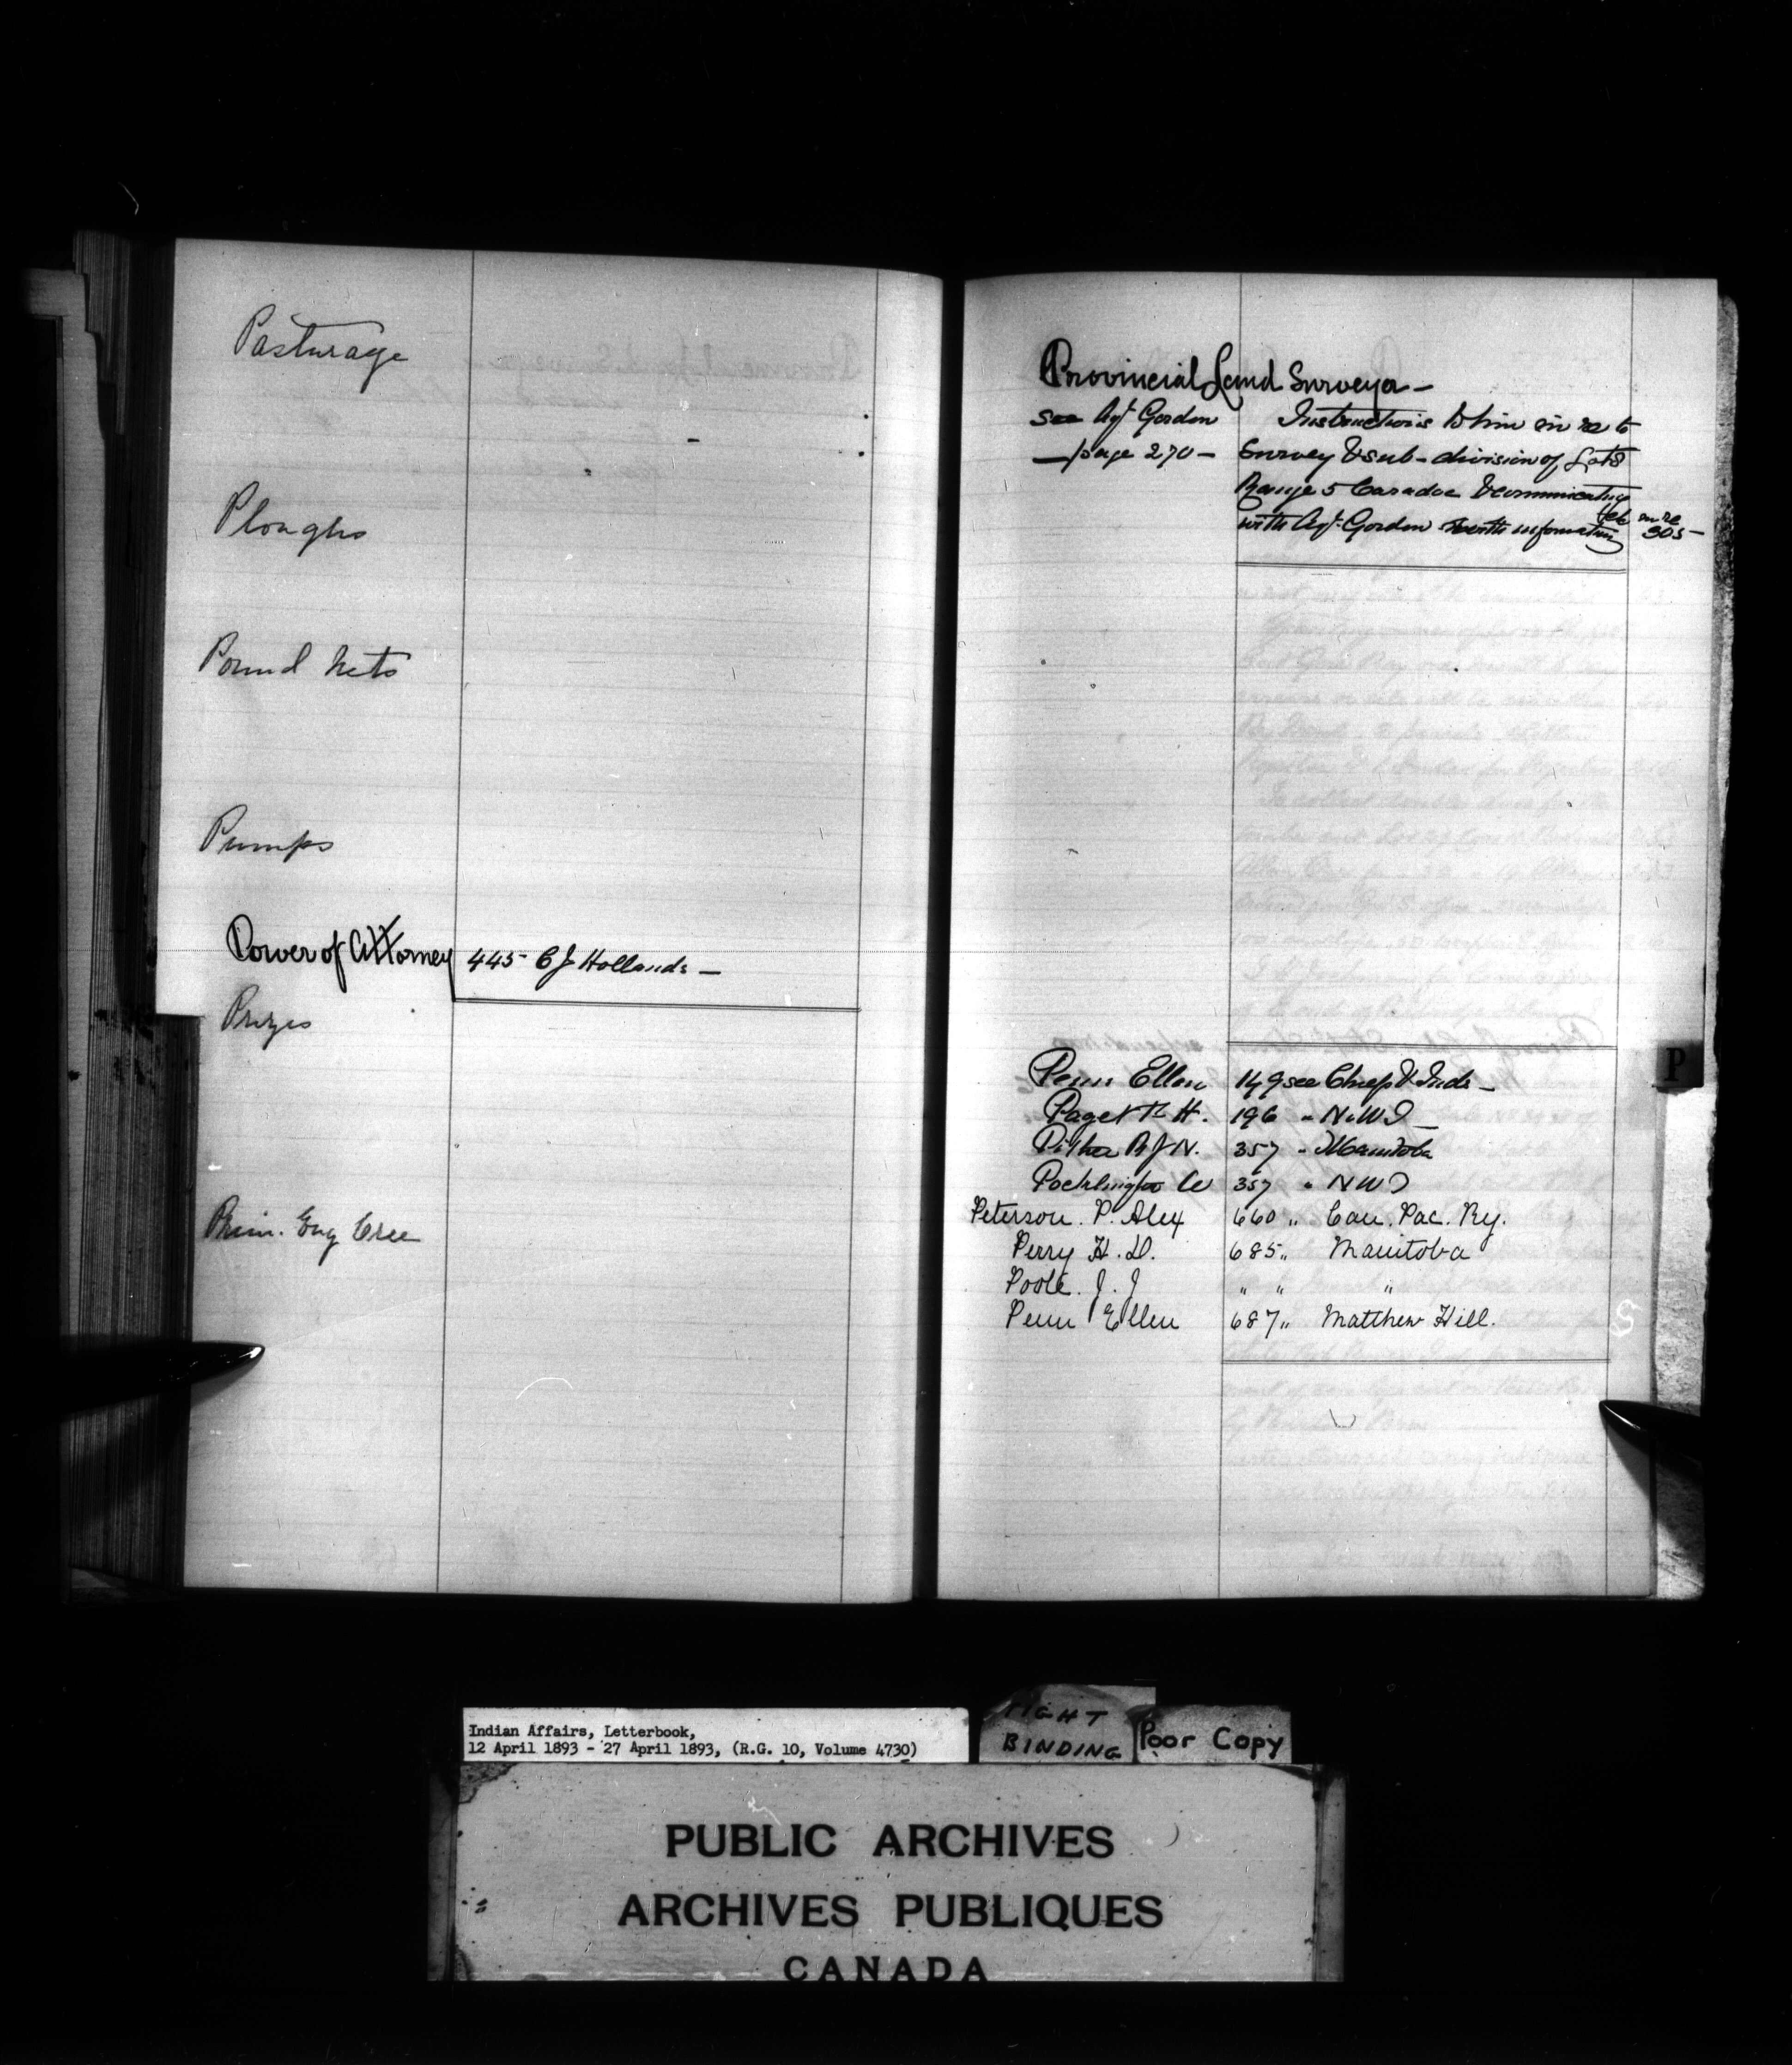 Pasturage
Ploughs
Pound Nets
Pumps
Power of Attorney 445 C J Hollands —
Prizes
Prim. Eng Cree
Provincial Land Surveyor —
see Agt Gordon Instructions to him in re to
— page 270 — Survey & sub-division of Lots
Range 5 Caradoc & communicating
with Agt. Gordon with information
in re
305 —
P
Penn Ellen 149 see Chiefs & Inds —
Paget F. H. 196 " N.W.T —
Pither R J N. 357 " Manitoba
Pocklington W 357 " N W T
Peterson. P. Alex 660 " Can. Pac. Ry.
Perry H. D. 685 " Manitoba
Poole. J. J " " "
Penn Ellen 687 " Matthew Hill.
Indian Affairs, Letterbook,
12 April 1893 - 27 April 1893, (R.G. 10, Volume 4730)
TIGHT
BINDING
Poor Copy
PUBLIC ARCHIVES
ARCHIVES PUBLIQUES
CANADA